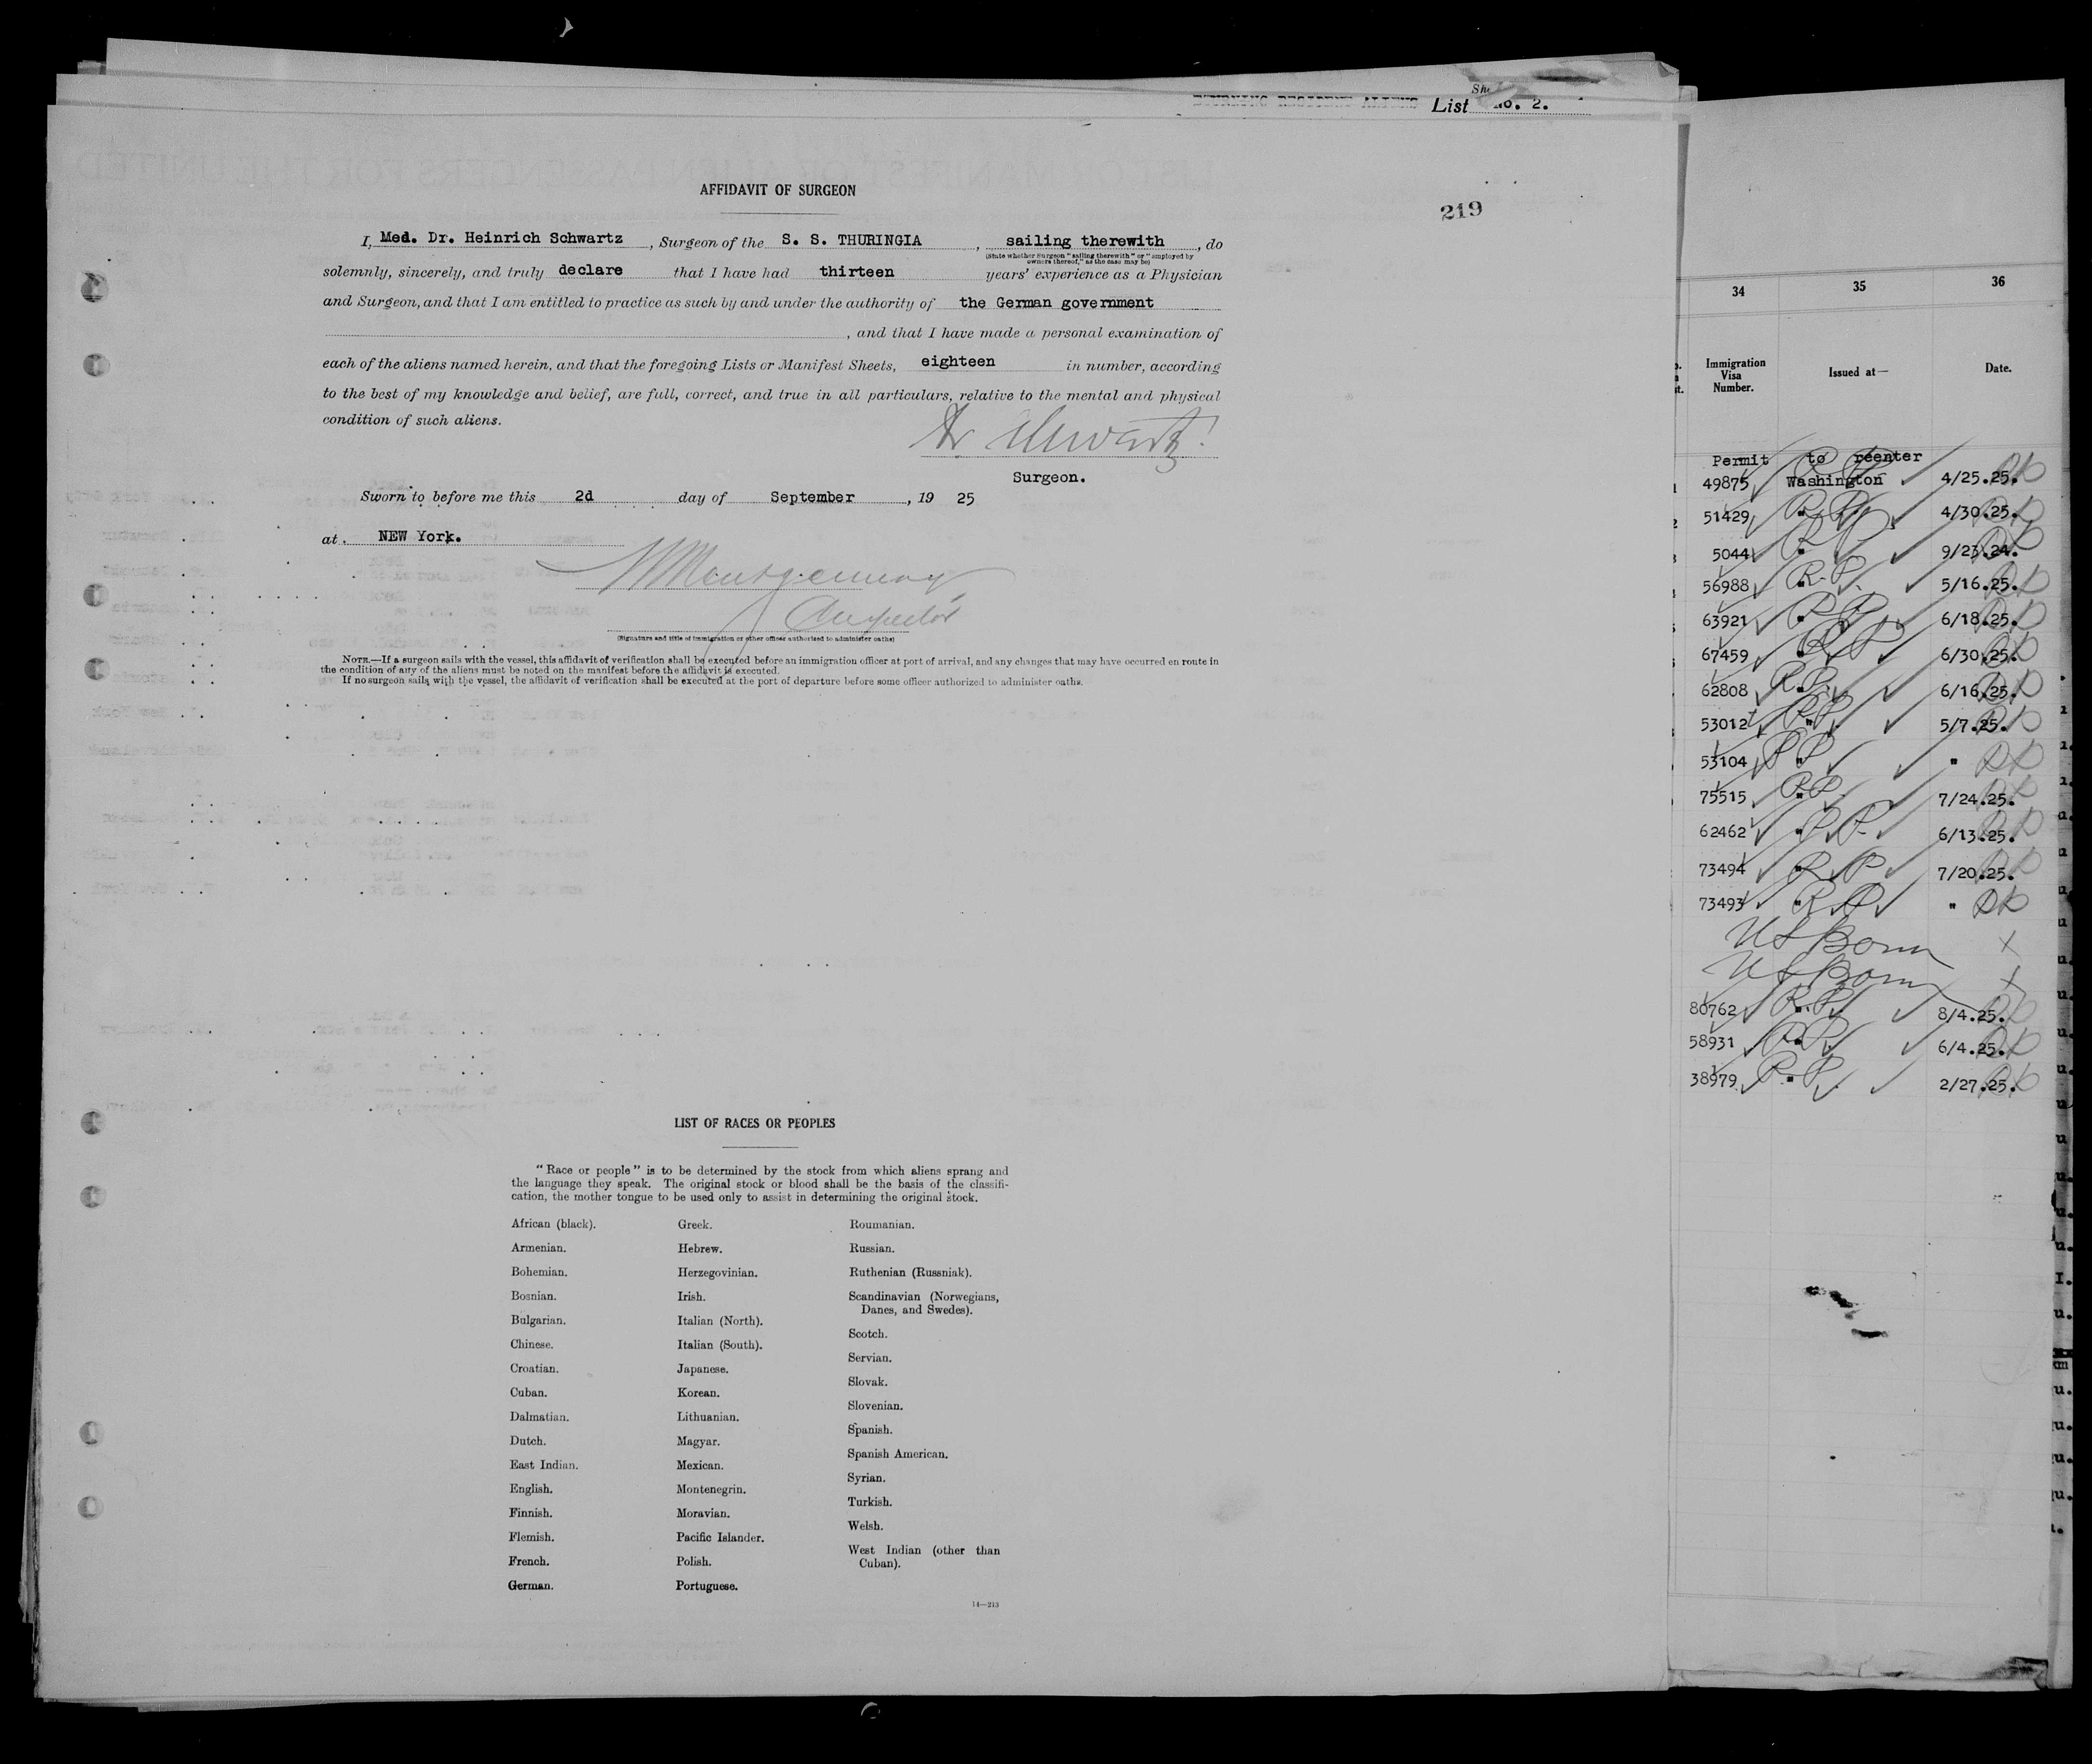 List No. 2.
AFFIDAVIT OF SURGEON
219
I, Med. Dr. Heinrich Schwartz, Surgeon of the S. S. THURINGIA, sailing therewith, do
(State whether Surgeon "sailing therewith" or "employed by
owners thereof," as the case may be)
solemnly, sincerely, and truly declare that I have had thirteen years' experience as a Physician
and Surgeon, and that I am entitled to practice as such by and under the authority of the German government
, and that I have made a personal examination of
each of the aliens named herein, and that the foregoing Lists or Manifest Sheets, eighteen in number, according
to the best of my knowledge and belief, are full, correct, and true in all particulars, relative to the mental and physical
condition of such aliens.
Dr Schwartz
Surgeon.
Sworn to before me this 2d day of September, 19 25
at NEW York.
Montgomery
Inspector
(Signature and title of immigration or other officer authorized to administer oaths)
NOTE.—If a surgeon sails with the vessel, this affidavit of verification shall be executed before an immigration officer at port of arrival, and any changes that may have occurred en route in
the condition of any of the aliens must be noted on the manifest before the affidavit is executed.
If no surgeon sails with the vessel, the affidavit of verification shall be executed at the port of departure before some officer authorized to administer oaths.
LIST OF RACES OR PEOPLES
"Race or people" is to be determined by the stock from which aliens sprang and
the language they speak. The original stock or blood shall be the basis of the classifi-
cation, the mother tongue to be used only to assist in determining the original stock.
African (black).
Armenian.
Bohemian.
Bosnian.
Bulgarian.
Chinese.
Croatian.
Cuban.
Dalmatian.
Dutch.
East Indian.
English.
Finnish.
Flemish.
French.
German.
Greek.
Hebrew.
Herzegovinian.
Irish.
Italian (North).
Italian (South).
Japanese.
Korean.
Lithuanian.
Magyar.
Mexican.
Montenegrin.
Moravian.
Pacific Islander.
Polish.
Portuguese.
Roumanian.
Russian.
Ruthenian (Russniak).
Scandinavian (Norwegians,
Danes, and Swedes).
Scotch.
Servian.
Slovak.
Slovenian.
Spanish.
Spanish American.
Syrian.
Turkish.
Welsh.
West Indian (other than
Cuban).
14—213
34 35 36
Immigration
Visa
Number.
Issued at—
Date.
Permit to reenter
49875 Washington 4/25.25.
51429 " R.P. 4/30.25.
5044 " R.P. 9/23.24.
56988 " R.P. 5/16.25.
63921 " R.P. 6/18.25.
67459 " R.P. 6/30.25.
62808 " R.P. 6/16.25.
53012 " R.P. 5/7.25.
53104 " R.P. "
75515 " R.P. 7/24.25.
62462 " R.P. 6/13.25.
73494 " R.P. 7/20.25.
73493 " R.P. "
US Born X
US Born X
80762 " R.P. 8/4.25.
58931 " R.P. 6/4.25.
38979 " R.P. 2/27.25.